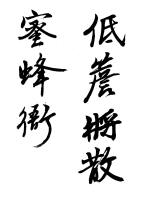 低簷將散
蜜蜂衙